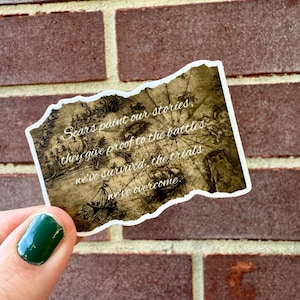 Scars paint our stories,
they give proof to the battles
we've survived, the trials
we've overcome.